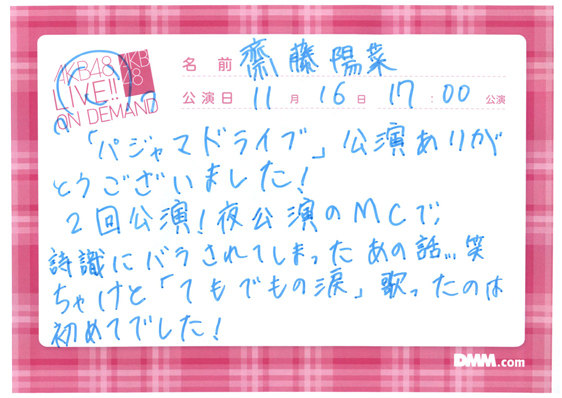 AKB48
LIVE!!
ON DEMAND
AKB
48
名前 齋藤陽菜
公演日 11月16日 17:00公演
「パジャマドライブ」公演ありが
とうございました!
2回公演!夜公演のMCで、
詩識にバラされてしまったあの話...笑
ちゃけと「てもでもの涙」歌ったのは
初めてでした!
DMM.com